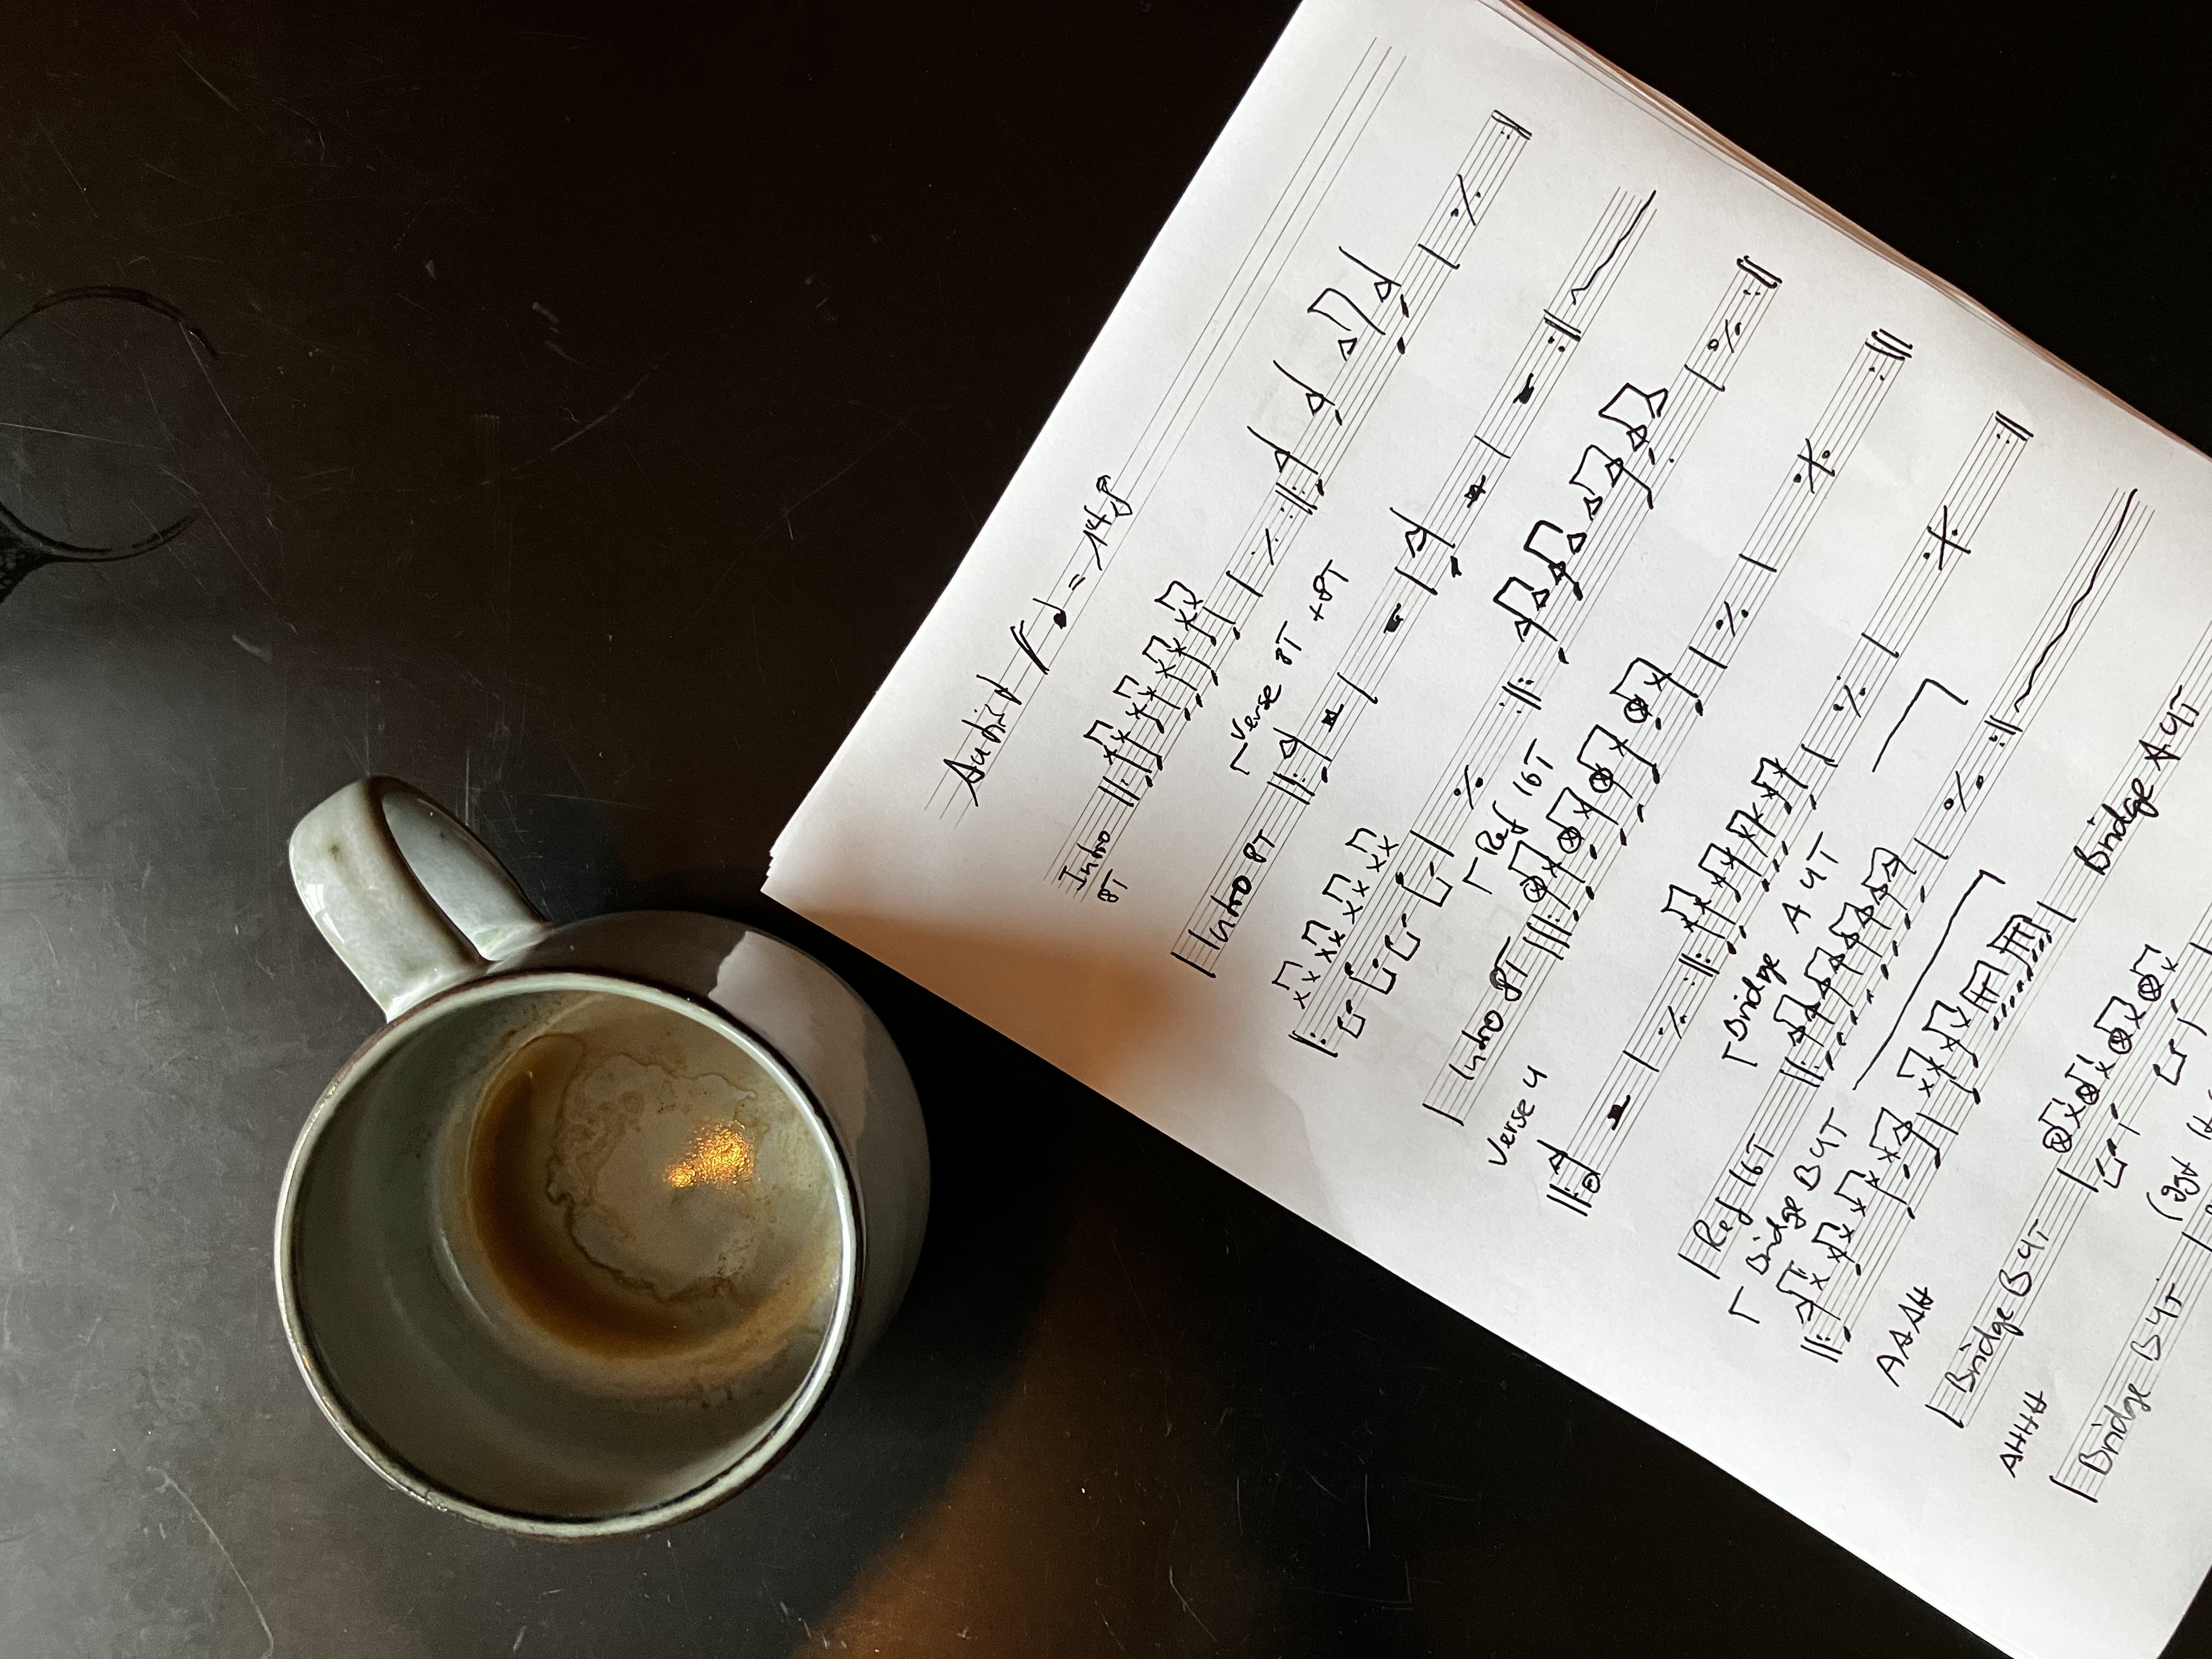 ♩ = 148
Intro
8T
Intro 8T
Verse 8T +8T
Intro 8T
Ref 16T
Verse 4
Ref 16T
Bridge A 4T
Bridge B 4T
AAAH
Bridge A 4T
Bridge B 4T
AHHH
Bridge B 4T